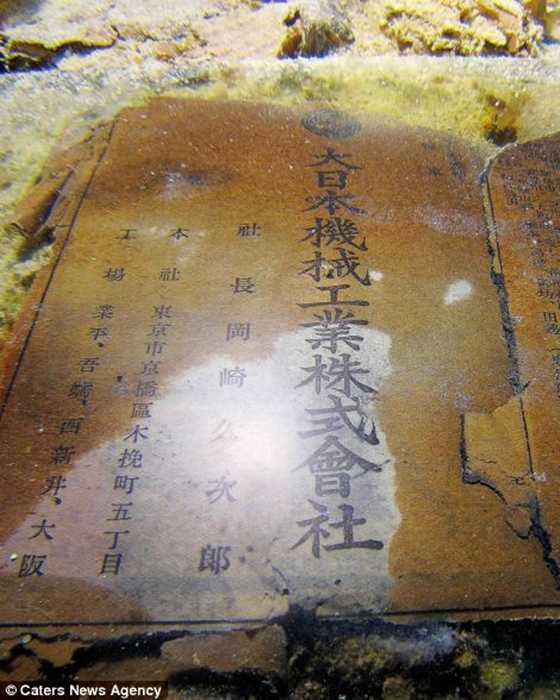 大日本機械工業株式會社
社長岡崎久次郎
本社 東京市京橋區木挽町五丁目
工場 業平、吾嬬、西新井、大阪
© Caters News Agency